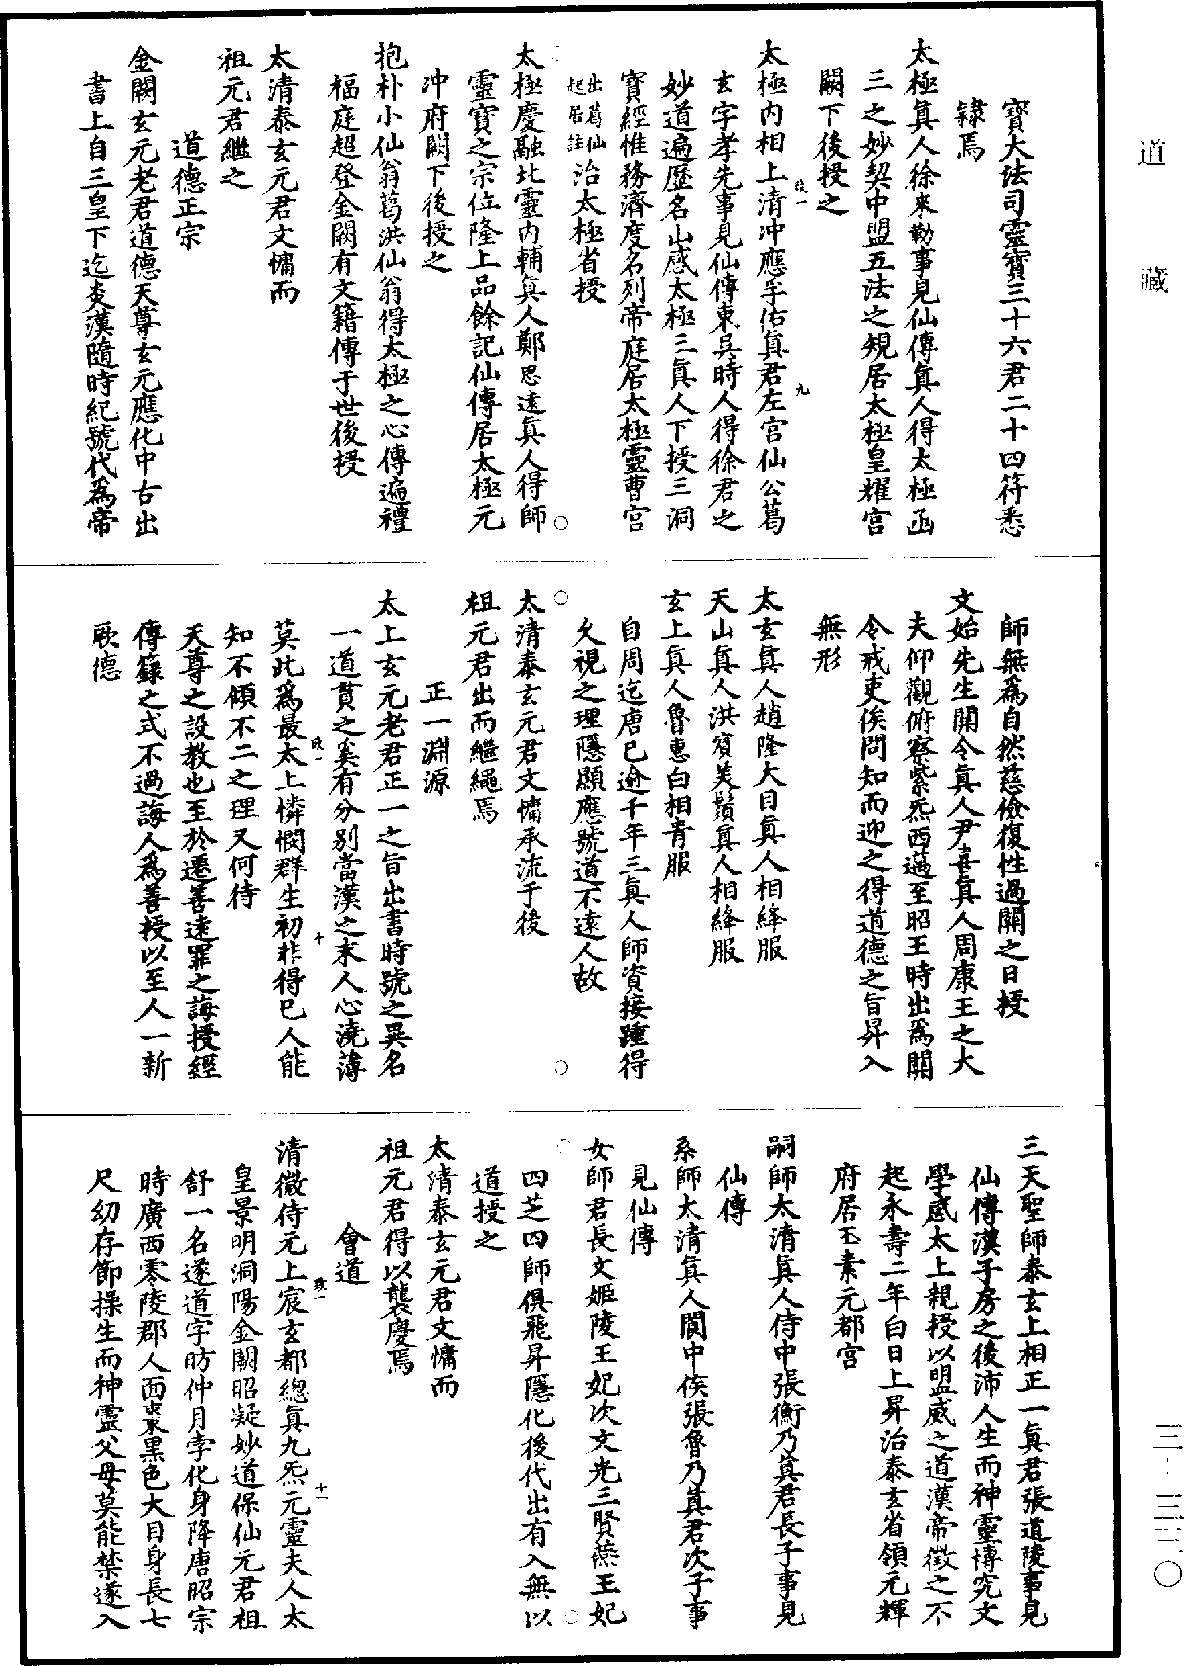 道藏
三-三三〇
寶大法司靈寶三十六君二十四符悉
隸焉
太極真人徐來勒事見仙傳真人得太極函
三之妙契中盟五法之規居太極皇耀宮
闕下後授之
太極內相上清冲應孚佑真君左宮仙公葛
玄字孝先事見仙傳東吳時人得徐君之
妙道遍歷名山感太極三真人下授三洞
寶經惟務濟度名列帝庭居太極靈曹宮
出葛仙起居註治太極省授
太極慶融北靈內輔真人鄭思遠真人得師
靈寶之宗位隆上品餘記仙傳居太極元
冲府闕下後授之
抱朴小仙翁葛洪仙翁得太極之心傳遍禮
福庭超登金闕有文籍傳于世後授
太清泰玄元君文慵而
祖元君繼之
道德正宗
金闕玄元老君道德天尊玄元應化中古出
書上自三皇下迄炎漢隨時紀號代為帝
師無為自然慈儉復性過關之日授
文始先生關令真人尹喜真人周康王之大
夫仰觀俯察紫炁西邁至昭王時出為關
令戒吏俟問知而迎之得道德之旨昇入
無形
太玄真人趙隆大目真人相絳服
天山真人洪賓美鬚真人相絳服
玄上真人魯惠白相青服
自周迄唐已逾千年三真人師資接踵得
久視之理隱顯應號道不遠人故
太清泰玄元君文慵承流于後
祖元君出而繼繩焉
正一淵源
太上玄元老君正一之旨出書時號之異名
一道貫之奚有分別當漢之末人心澆薄
莫此為最太上憐憫群生初非得已人能
知不傾不二之理又何待
天尊之設教也至於遷善遠罪之誨授經
傳籙之式不過誨人為善授以至人一新
厥德
三天聖師泰玄上相正一真君張道陵事見
仙傳漢子房之後沛人生而神靈博究文
學感太上親授以盟威之道漢帝徵之不
起永壽二年白日上昇治泰玄省領元輝
府居玉素元都宮
嗣師太清真人侍中張衡乃真君長子事見
仙傳
系師太清真人閬中侯張魯乃真君次子事
見仙傳
女師君長文姬陵王妃次文光三賢燕王妃
四芝四師俱飛昇隱化後代出有入無以
道授之
太清泰玄元君文慵而
祖元君得以襲慶焉
會道
清微侍元上宸玄都總真九炁元靈夫人太
皇景明洞陽金闕昭凝妙道保仙元君祖
舒一名遂道字昉仲月孛化身降唐昭宗
時廣西零陵郡人面棗黑色大目身長七
尺幼存節操生而神靈父母莫能禁遂入